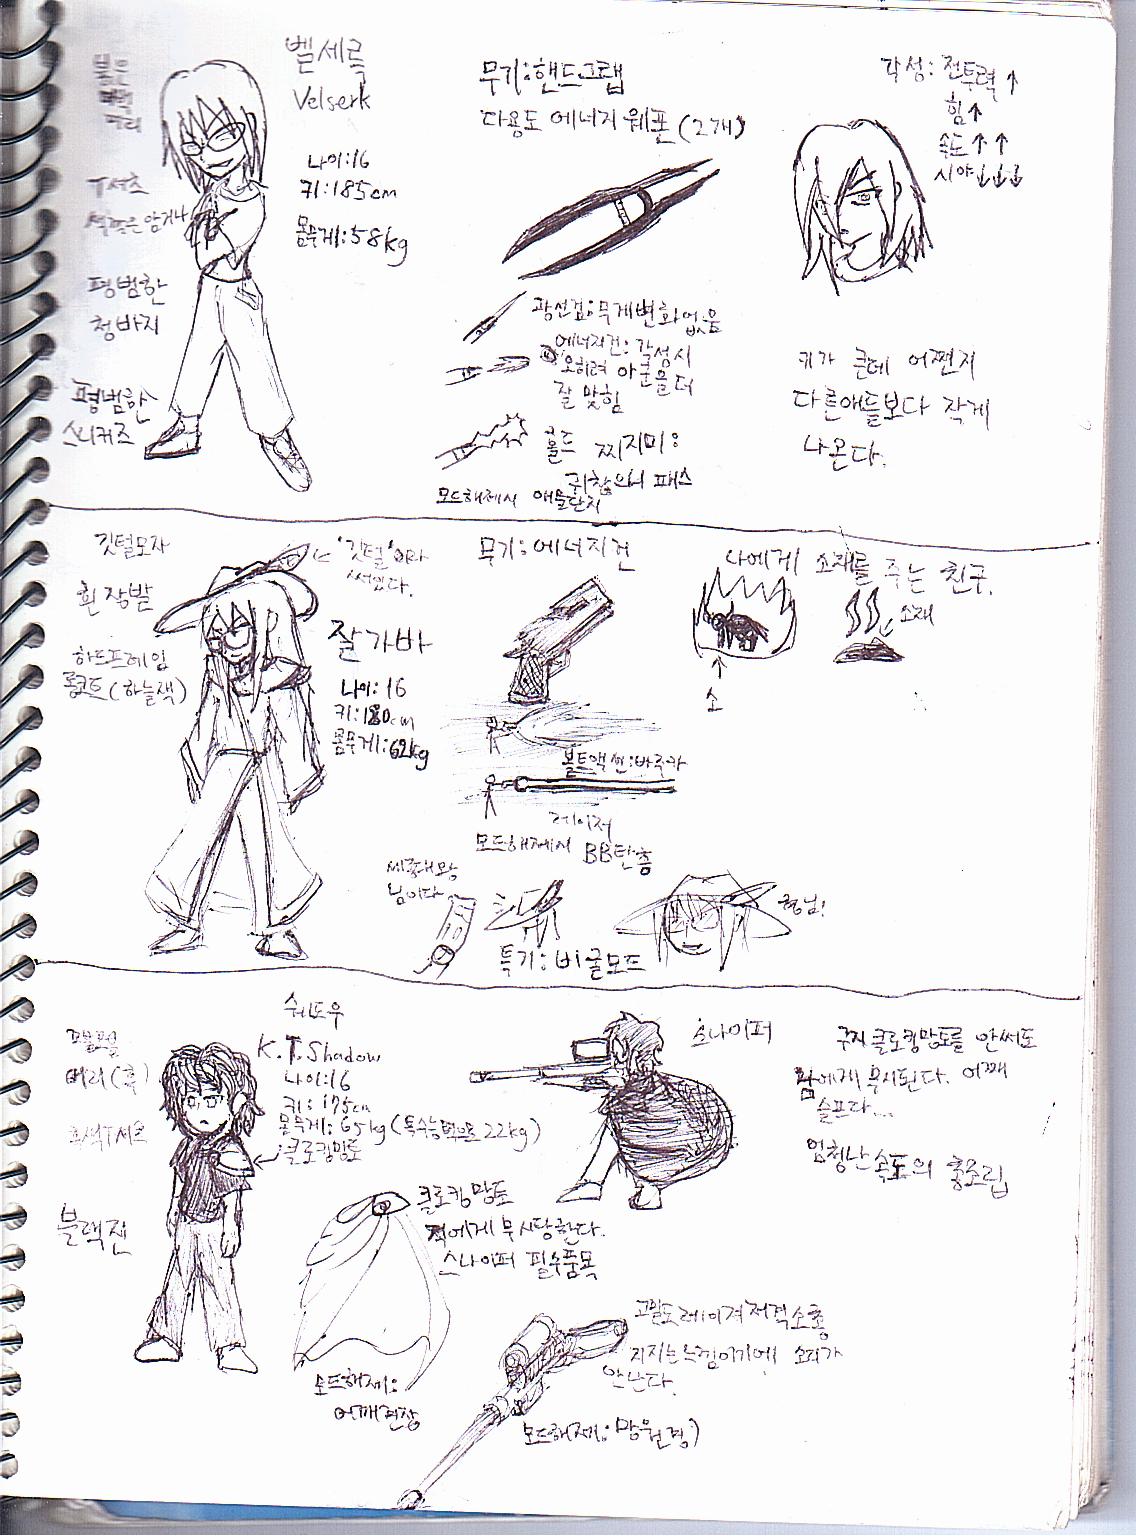 벨세륵
Velserk
붉은
머리
T셔츠
색깔은 암거나
평범한
청바지
평범한
스니커즈
나이:16
키:185cm
몸무게:58kg
무기:핸드그랩
다용도 에너지 웨폰(2개)
광선검:무게변화없음
에너지건:각성시
오히려 아군을 더
잘 맞힘
홀드 찌지미:
귀찮으니 패스
모드해제시 애물단지
각성:전투력↑
힘↑
속도↑↑
시야↓↓↓
키가 큰데 어쩐지
다른애들보다 작게
나온다.
깃털모자
흰 장발
하드프레임
롱코트(하늘색)
'깃털'이라
써있다.
잘가바
나이:16
키:180cm
몸무게:62kg
무기:에너지건
볼트액션:바주카
레이저
모드해제시 BB탄총
세종대왕
님이다.
특기:비굴모드
형님!
나에게 소재를 주는 친구.
소재
소
쉐도우
K.T.Shadow
나이:16
키:175cm
몸무게:65kg(특수능력으로 22kg)
클로킹망토
머리(흑)
흑색T셔츠
블랙진
클로킹망토
적에게 무시당한다.
스나이퍼 필수품목
모드해제:
어깨견장
스나이퍼
굳이 클로킹망토를 안써도
남에게 무시된다. 어째
슬프다...
엄청난 속도의 총조립
고밀도레이져저격소총
지지는느낌이기에 소리가
안난다.
모드해제:망원경)